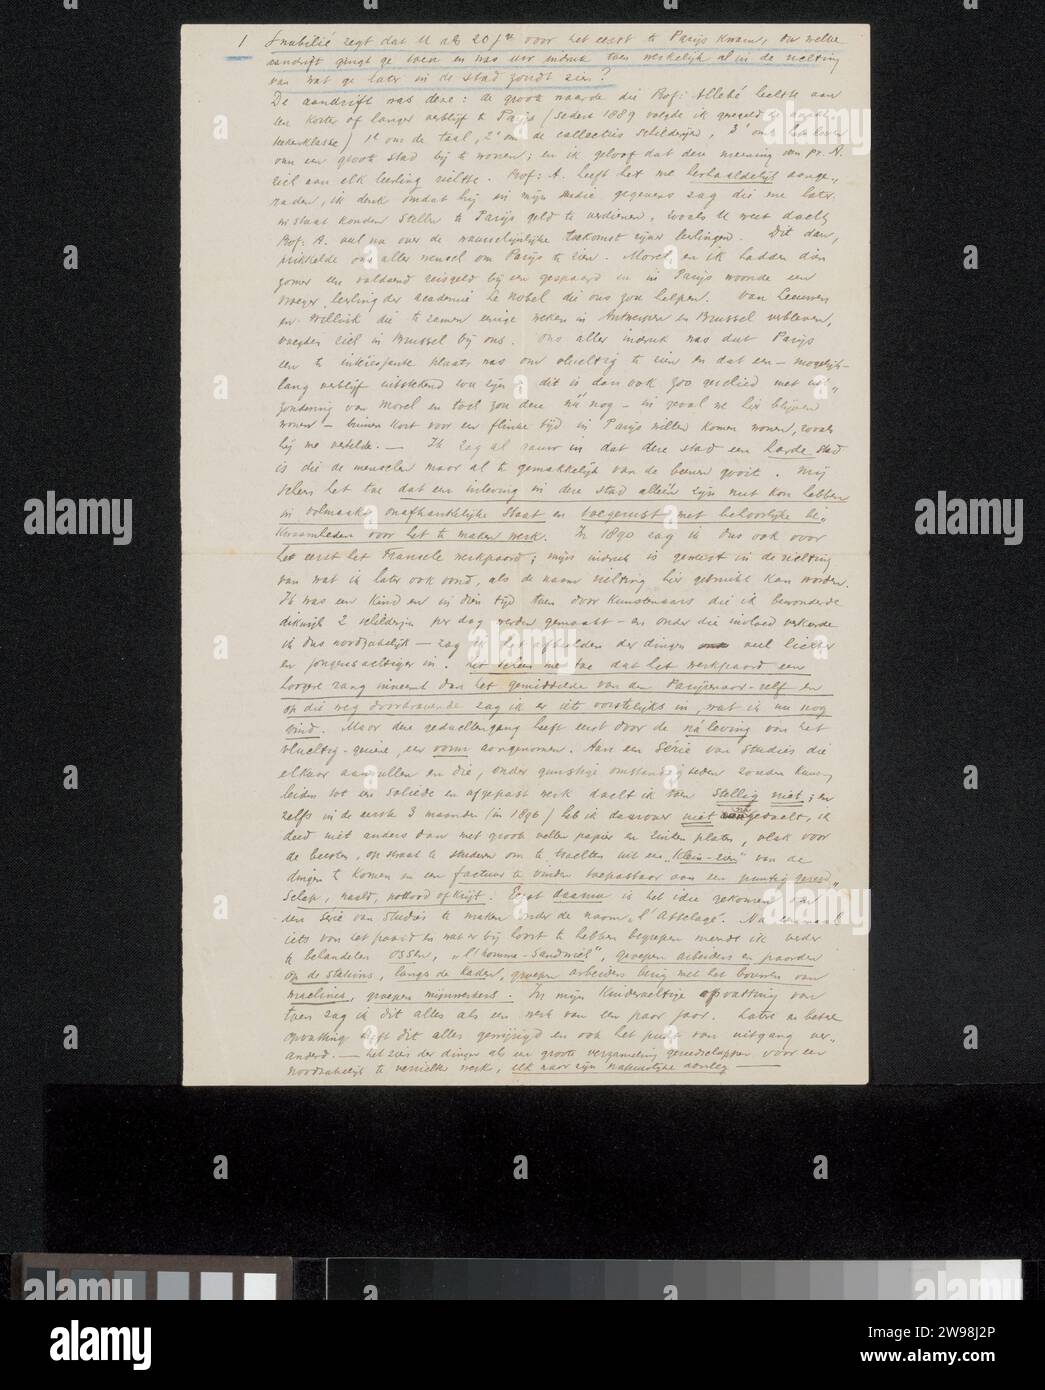 1 zegt dat U als 20 j voor het eerst te Parijs kwam, om welke
aandrift gingt ge toen en was uw indruk toen werkelijk al in de richting
van wat ge later in de stad zoudt zien?
De aandrift was deze: de groote waarde die Prof: Allebé hechtte aan
een korter of langer verblijf te Parijs (sedert 1889 volgde ik geregeld de
) 1e om de taal, 2e om de collecties schilderijen, 3e om het leven
van een groote stad bij te wonen; en ik geloof dat deze meening van Pr. A.
zich aan elk leerling richtte. Prof: A. heeft het me herhaaldelijk aange„
raden, ik denk omdat hij in mijn studie gegevens zag die me later
in staat konden stellen te Parijs geld te verdienen, zooals U weet dacht
Prof: A. veel na over de waarschijnlijke toekomst zijner leerlingen. Dit dan,
prikkelde ons aller wensch om Parijs te zien. Morel en ik hadden dien
zomer een voldoend reisgeld bij een gespaard en in Parijs woonde een
vroeger leerling der academie Le Nobel die ons zou helpen. Van Leeuwen
en die te zamen eenige weken in Antwerpen en Brussel verbleven,
voegden zich in Brussel bij ons. Ons aller indruk was dat Parijs
een te interessante plaats was om vluchtig te zien en dat een – mogelijk–
lang verblijf uitstekend zou zijn; dit is dan ook zoo geschied met uit„
zondering van Morel en toch zou deze nú nog – in geval we hier blijven
wonen – binnen kort voor een flinke tijd in Parijs willen komen wonen, zooals
hij me vertelde. — Ik zag al gauw in dat deze stad een harde stad
is die de menschen maar al te gemakkelijk van de beenen gooit. Mij
scheen het toe dat een inleving in deze stad alleen zijn nut kon hebben
in volmaakt onafhankelijke staat en toegerust met behoorlijke be„
kwaamheden voor het te maken werk. In 1890 zag ik dus ook voor
het eerst het Fransche werkpaard; mijn indruk is geweest in de richting
van wat ik later ook vond, als de naam richting hier gebruikt kan worden.
Ik was een kind en in dien tijd toen door kunstenaars die ik bewonderde
dikwijls 2 schilderijen per dag werden gemaakt – en onder die invloed verkeerde
ik dus noodzakelijk – zag ik het afbeelden der dingen veel lichter
en jongensachtiger in. Het scheen me toe dat het werkpaard een
hoogere rang inneemt dan het gemiddelde van den Parijzenaar-zelf en
op die weg doorbravende zag ik er iets vorstelijks in, wat ik nu nog
vind. Maar deze gedachtengang heeft eerst door de náleving van het
vluchtig-geziene, een vorm aangenomen. Aan een Serie van Studies die
elkaar aanvullen en die, onder gunstige omstandigheden zouden kunnen
leiden tot een soliede en afgepast werk dacht ik toen stellig niet; en
zelfs in de eerste 3 maanden (in 1896) heb ik daarover niet nagedacht, ik
deed niet anders dan met groote vellen papier en zinken platen, vlak voor
de beesten, op straat te studeeren om te trachten uit een „klein-zien" van de
dingen te komen en een factuur te vinden toepasbaar aan een puntig gereed„
schap, naald, potlood of krijt. Eerst daarna is het idee gekomen van
een serie van Studies te maken onder de naam „l'Attelage". Na eenmaal
iets van het paard en wat er bij hoort te hebben begrepen wensch ik verder
te behandelen ossen, „l'homme-Sandwich", groepen arbeiders en paarden
op de stations, langs de kaden, groepen arbeiders bezig met het bouwen van
machines, groepen mijnwerkers. In mijn kinderachtige opvatting van
toen zag ik dit alles als een werk van een paar jaar. Latere en betere
opvatting heeft dit alles gewijzigd en ook het punt van uitgang ver„
anderd. — het zien der dingen als een groote verzameling gereedschappen voor een
noodzakelijk te verrichten werk, elk naar zijn natuurlijke aanleg —
alamy
2W98J2P